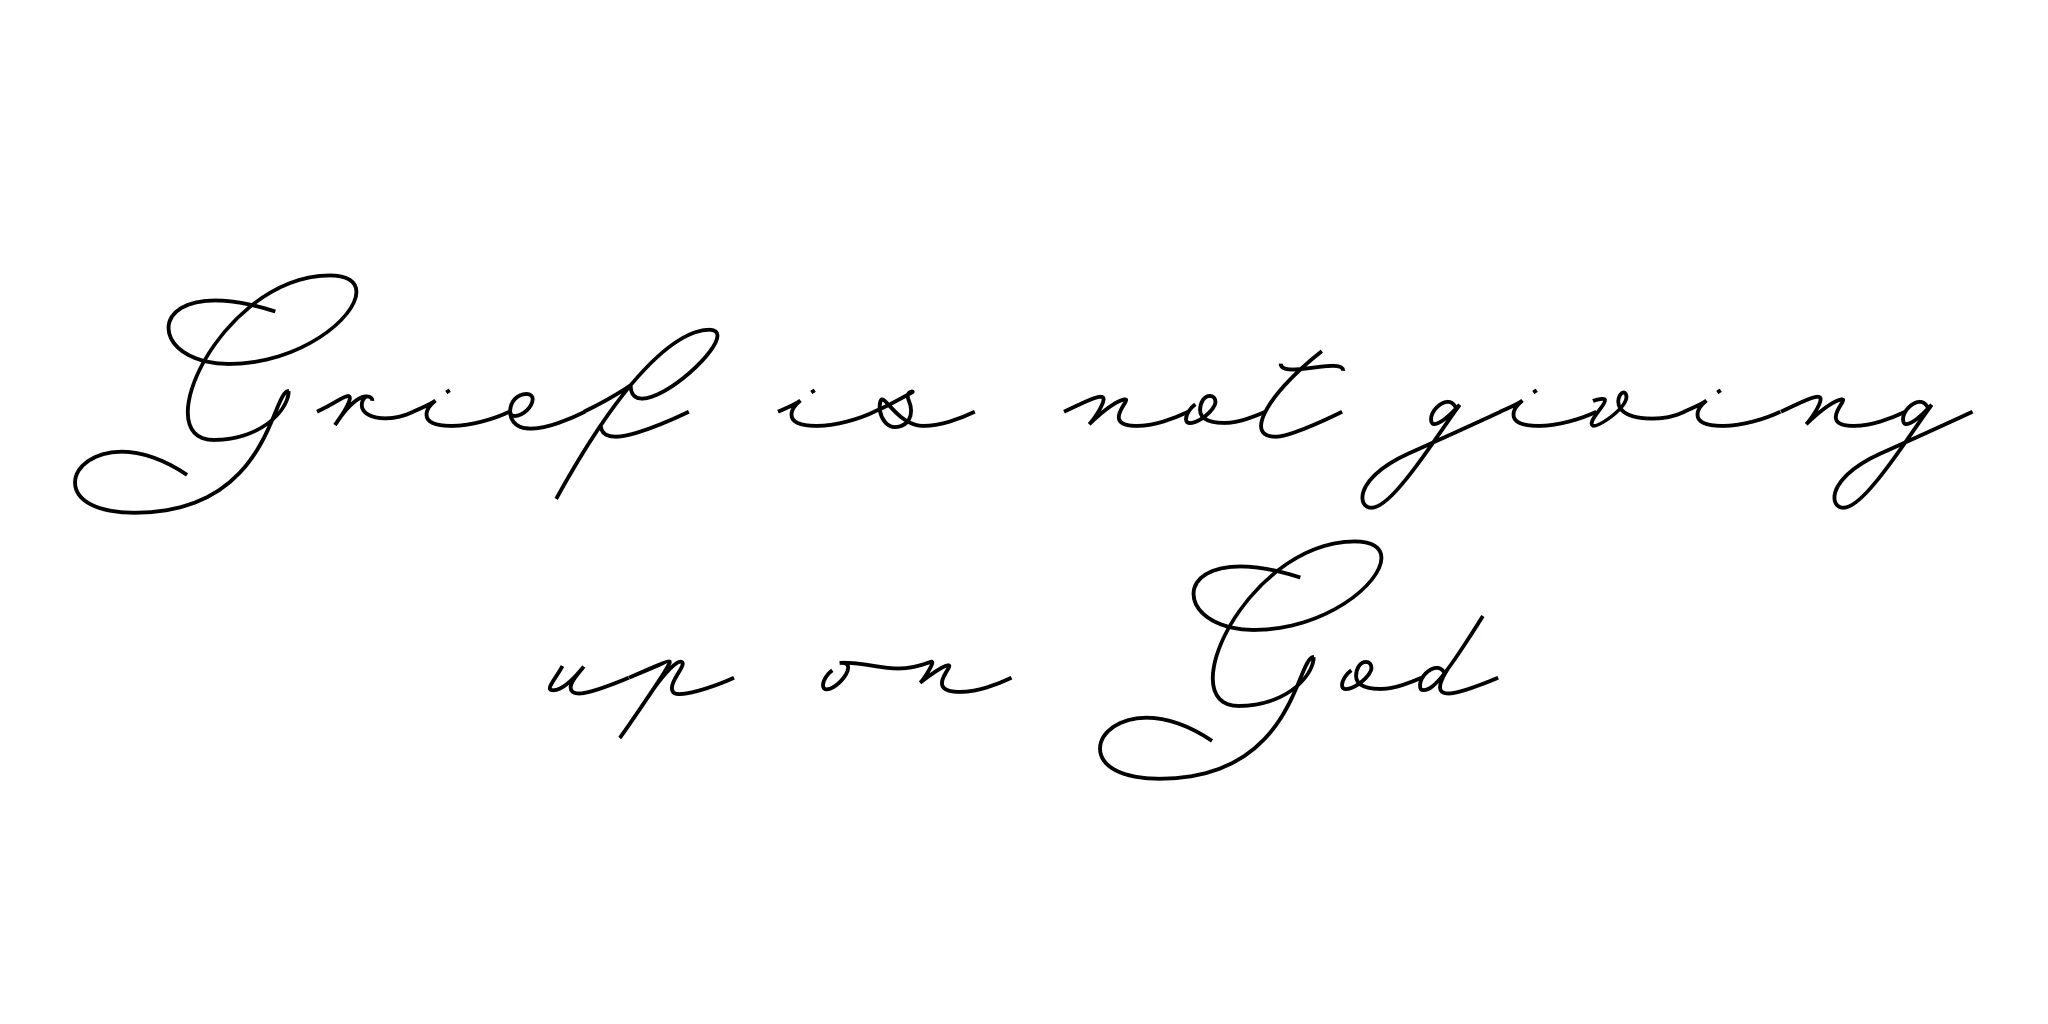 Grief is not giving
up on God